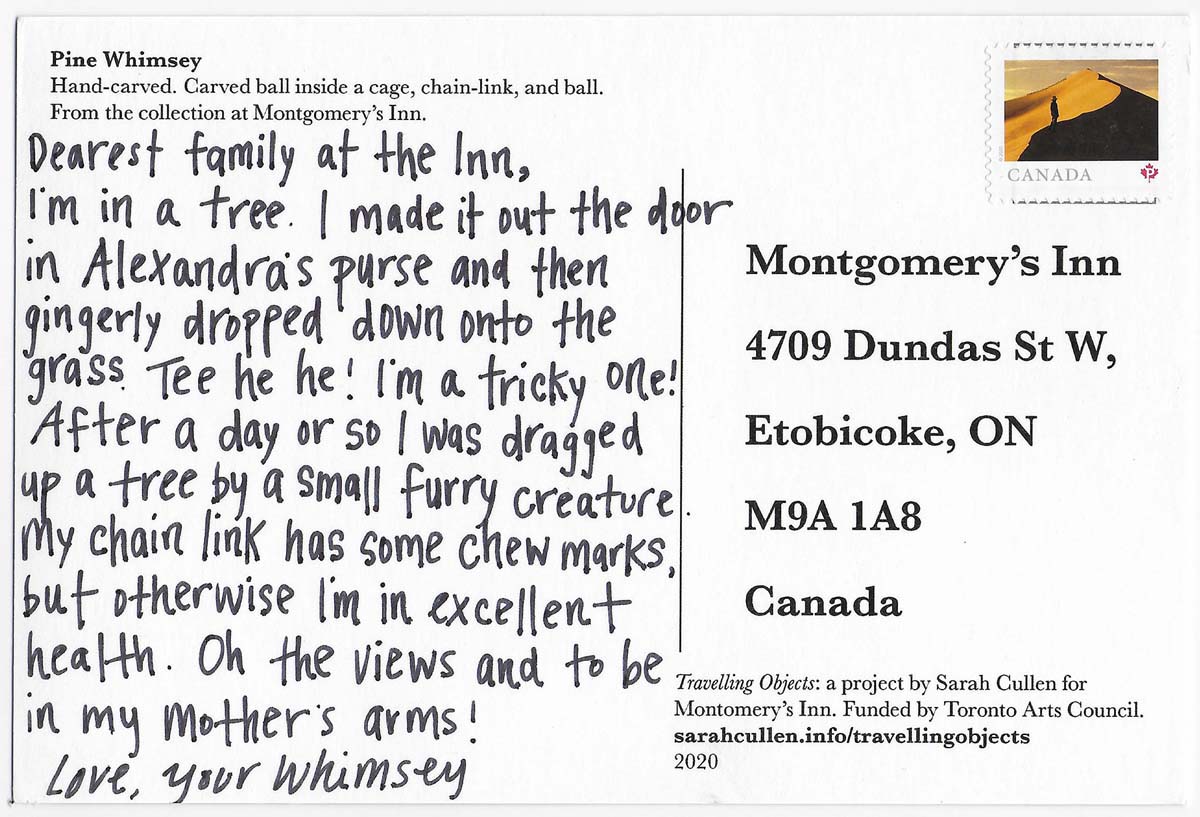 Pine Whimsey
Hand-carved. Carved ball inside a cage, chain-link, and ball.
From the collection at Montgomery's Inn.
Dearest family at the Inn,
I'm in a tree. I made it out the door
in Alexandra's purse and then
gingerly dropped down onto the
grass. Tee he he! I'm a tricky one!
After a day or so I was dragged
up a tree by a small furry creature.
My chain link has some chew marks,
but otherwise I'm in excellent
health. Oh the views and to be
in my mother's arms!
Love, your Whimsey
CANADA P
Montgomery's Inn
4709 Dundas St W,
Etobicoke, ON
M9A 1A8
Canada
Travelling Objects: a project by Sarah Cullen for
Montomery's Inn. Funded by Toronto Arts Council.
sarahcullen.info/travellingobjects
2020